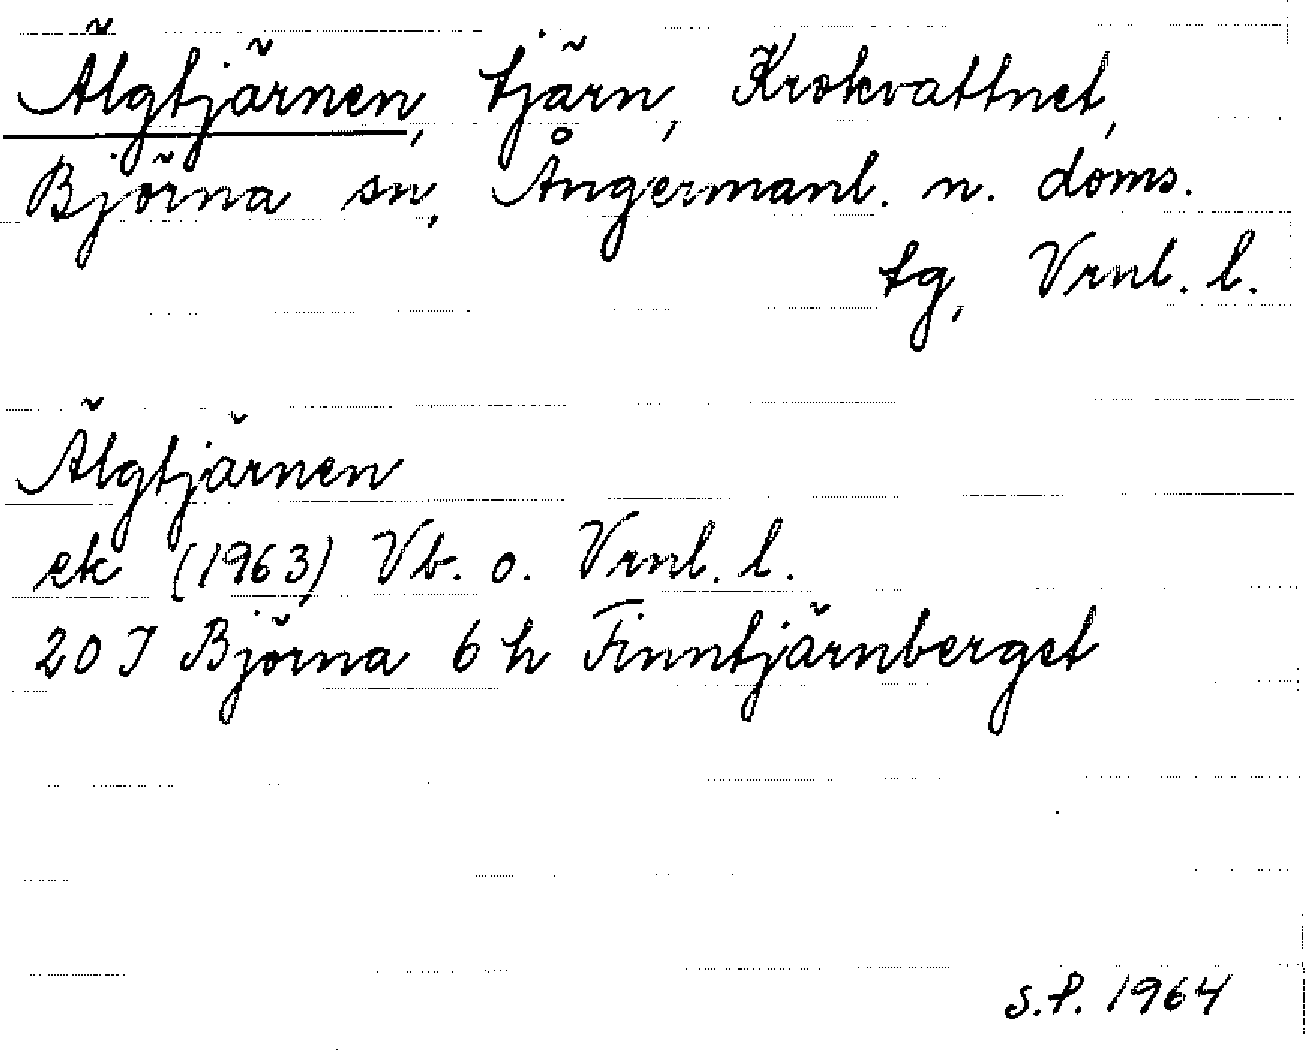 Älgtjärnen, tjärn, Krokvattnet,
Björna sn, Ångermanl. n. doms.
tg, Vrnl. l.
Älgtjärnen
ek (1963) Vb. o. Vrnl. l.
20 J Björna 6 h Finntjärnberget
S.P. 1964